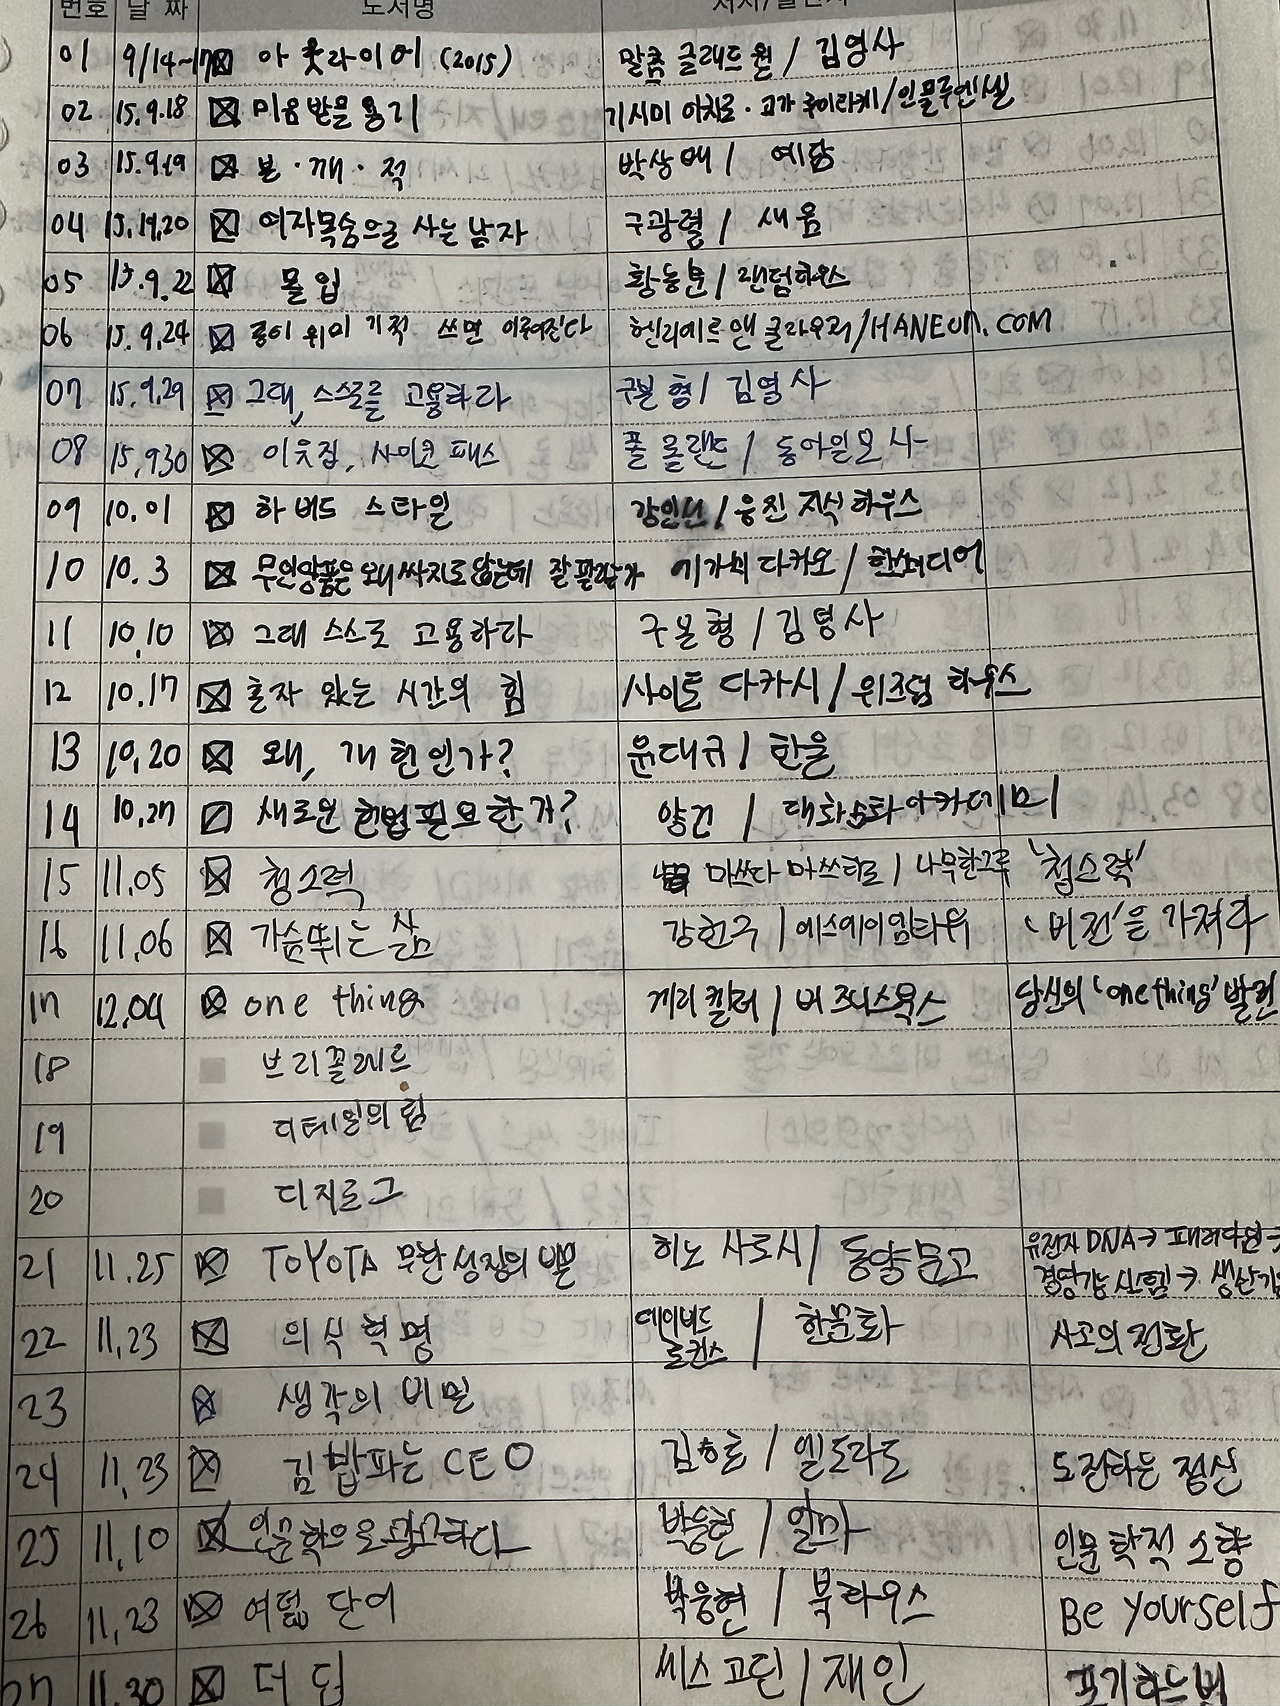 번호 날 짜 도서명
01 9/14~17 아웃라이어 (2015) 말콤 글래드웰 / 김영사
02 15.9.18 미움받을 용기 기시미 이치로 · 고가 후미타케/인플루엔셜
03 15.9.19 본·깨·적 박상배 / 예담
04 15.19.20 여자목숨으로 사는 남자 구광렬 / 새움
05 15.9.22 몰입 황농문 / 랜덤하우스
06 15.9.24 종이 위의 기적 쓰면 이루어진다 헨리에트 앤 클라우저/HANEON.COM
07 15.9.29 그대, 스스로를 고용하라 구본형 / 김영사
08 15.930 이웃집, 사이코패스 폴 롤랜드 / 동아일보사
09 10.01 하버드 스타일 강인선 / 웅진 지식하우스
10 10.3 무인양품은 왜 싸지도 않는데 잘 팔리는가 다카오 / 한스미디어
11 10.10 그대 스스로 고용하라 구본형 / 김영사
12 10.17 혼자 있는 시간의 힘 사이토 다카시 / 위즈덤 하우스
13 10.20 왜, 개헌인가? 윤대규 / 한울
14 10.27 새로운 헌법 필요한가? 양건 / 대화문화아카데미
15 11.05 청소력 마쓰다 마쓰히로 / 나무한그루 '청소력'
16 11.06 가슴뛰는 삶 강헌구 / 에스에이엠티유 '비전'을 가져라
17 12.04 one thing 게리 켈러 / 비즈니스북스 당신의 'one thing' 발견
18 브리꼴레르
19 디테일의 힘
20 디지로그
21 11.25 TOYOTA 무한성장의 비밀 히노 사토시 / 동양문고 유전자 DNA→ 패러다임→
경영기능 시스템→ 생산기
22 11.23 의식혁명 데이비드 호킨스 / 한문화 사고의 전환
23 생각의 비밀
24 11.23 김밥파는 CEO 김승호 / 엘도라도 도전하는 정신
25 11.10 인문학으로 광고하다 박웅현 / 알마 인문학적 소양
26 11.23 여덟 단어 박웅현 / 북하우스 Be Yourself
27 11.30 더 딥 세스 고딘 / 재인 포기하는 법